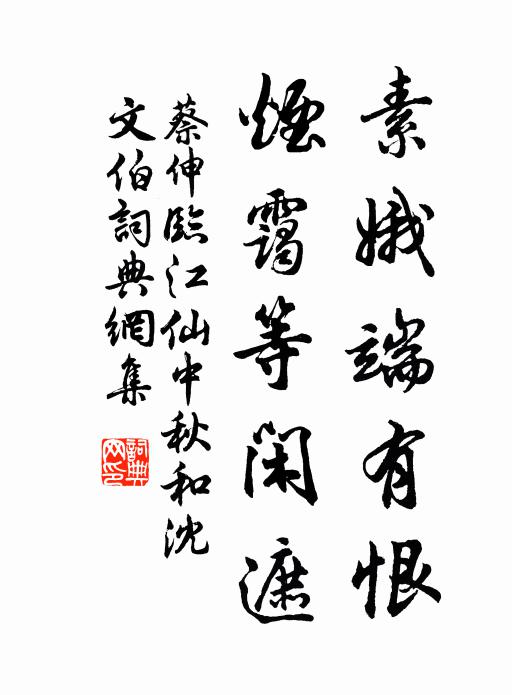 素娥端有恨
煙靄等閑遮
蔡伸臨江仙中秋和沈
文伯詞典網集
詞典网印